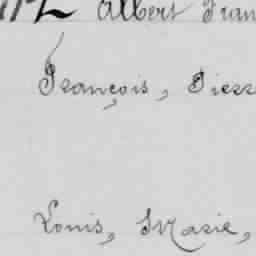 Albert Fran
François, Pierr
Louis, Marie,